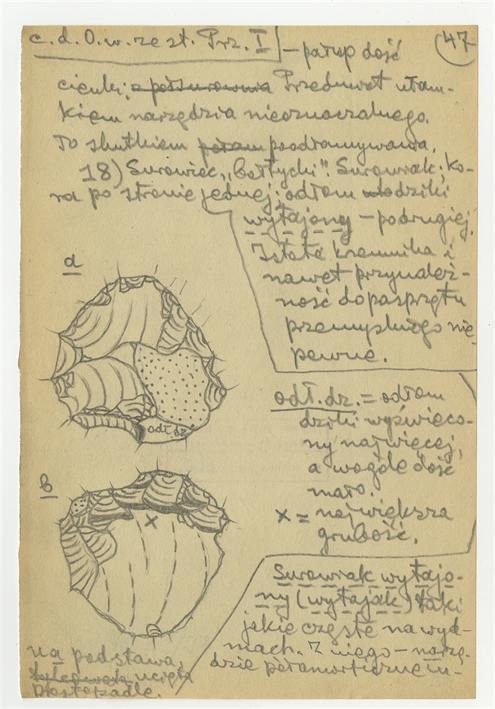 c. d. O. w. ze st. Prz. I — parsp dość
47
cienki; Przedmiot ułam-
kiem narzędzia nieoznaczalnego.
To skutkiem poodramywania.
18) Surowiec „bałtycki". Surowiak; ko-
ra po stronie jednej; odłam dziki
wyłajony — po drugiej.
Istota krzemnika i
nawet przynależ-
ność do pasprzętu
przemysłnego nie-
pewne.
a
odł. dz.
odł. dz. = odłam
dziki wyświeco-
ny najwięcej,
a wogóle dość
mało.
b
x
x = największa
grubość.
Surowiak wyłajo-
ny (wyłajak) taki
jakie częste na wyd-
mach. Z niego — narzę-
dzie
na podstawa,
ucięta